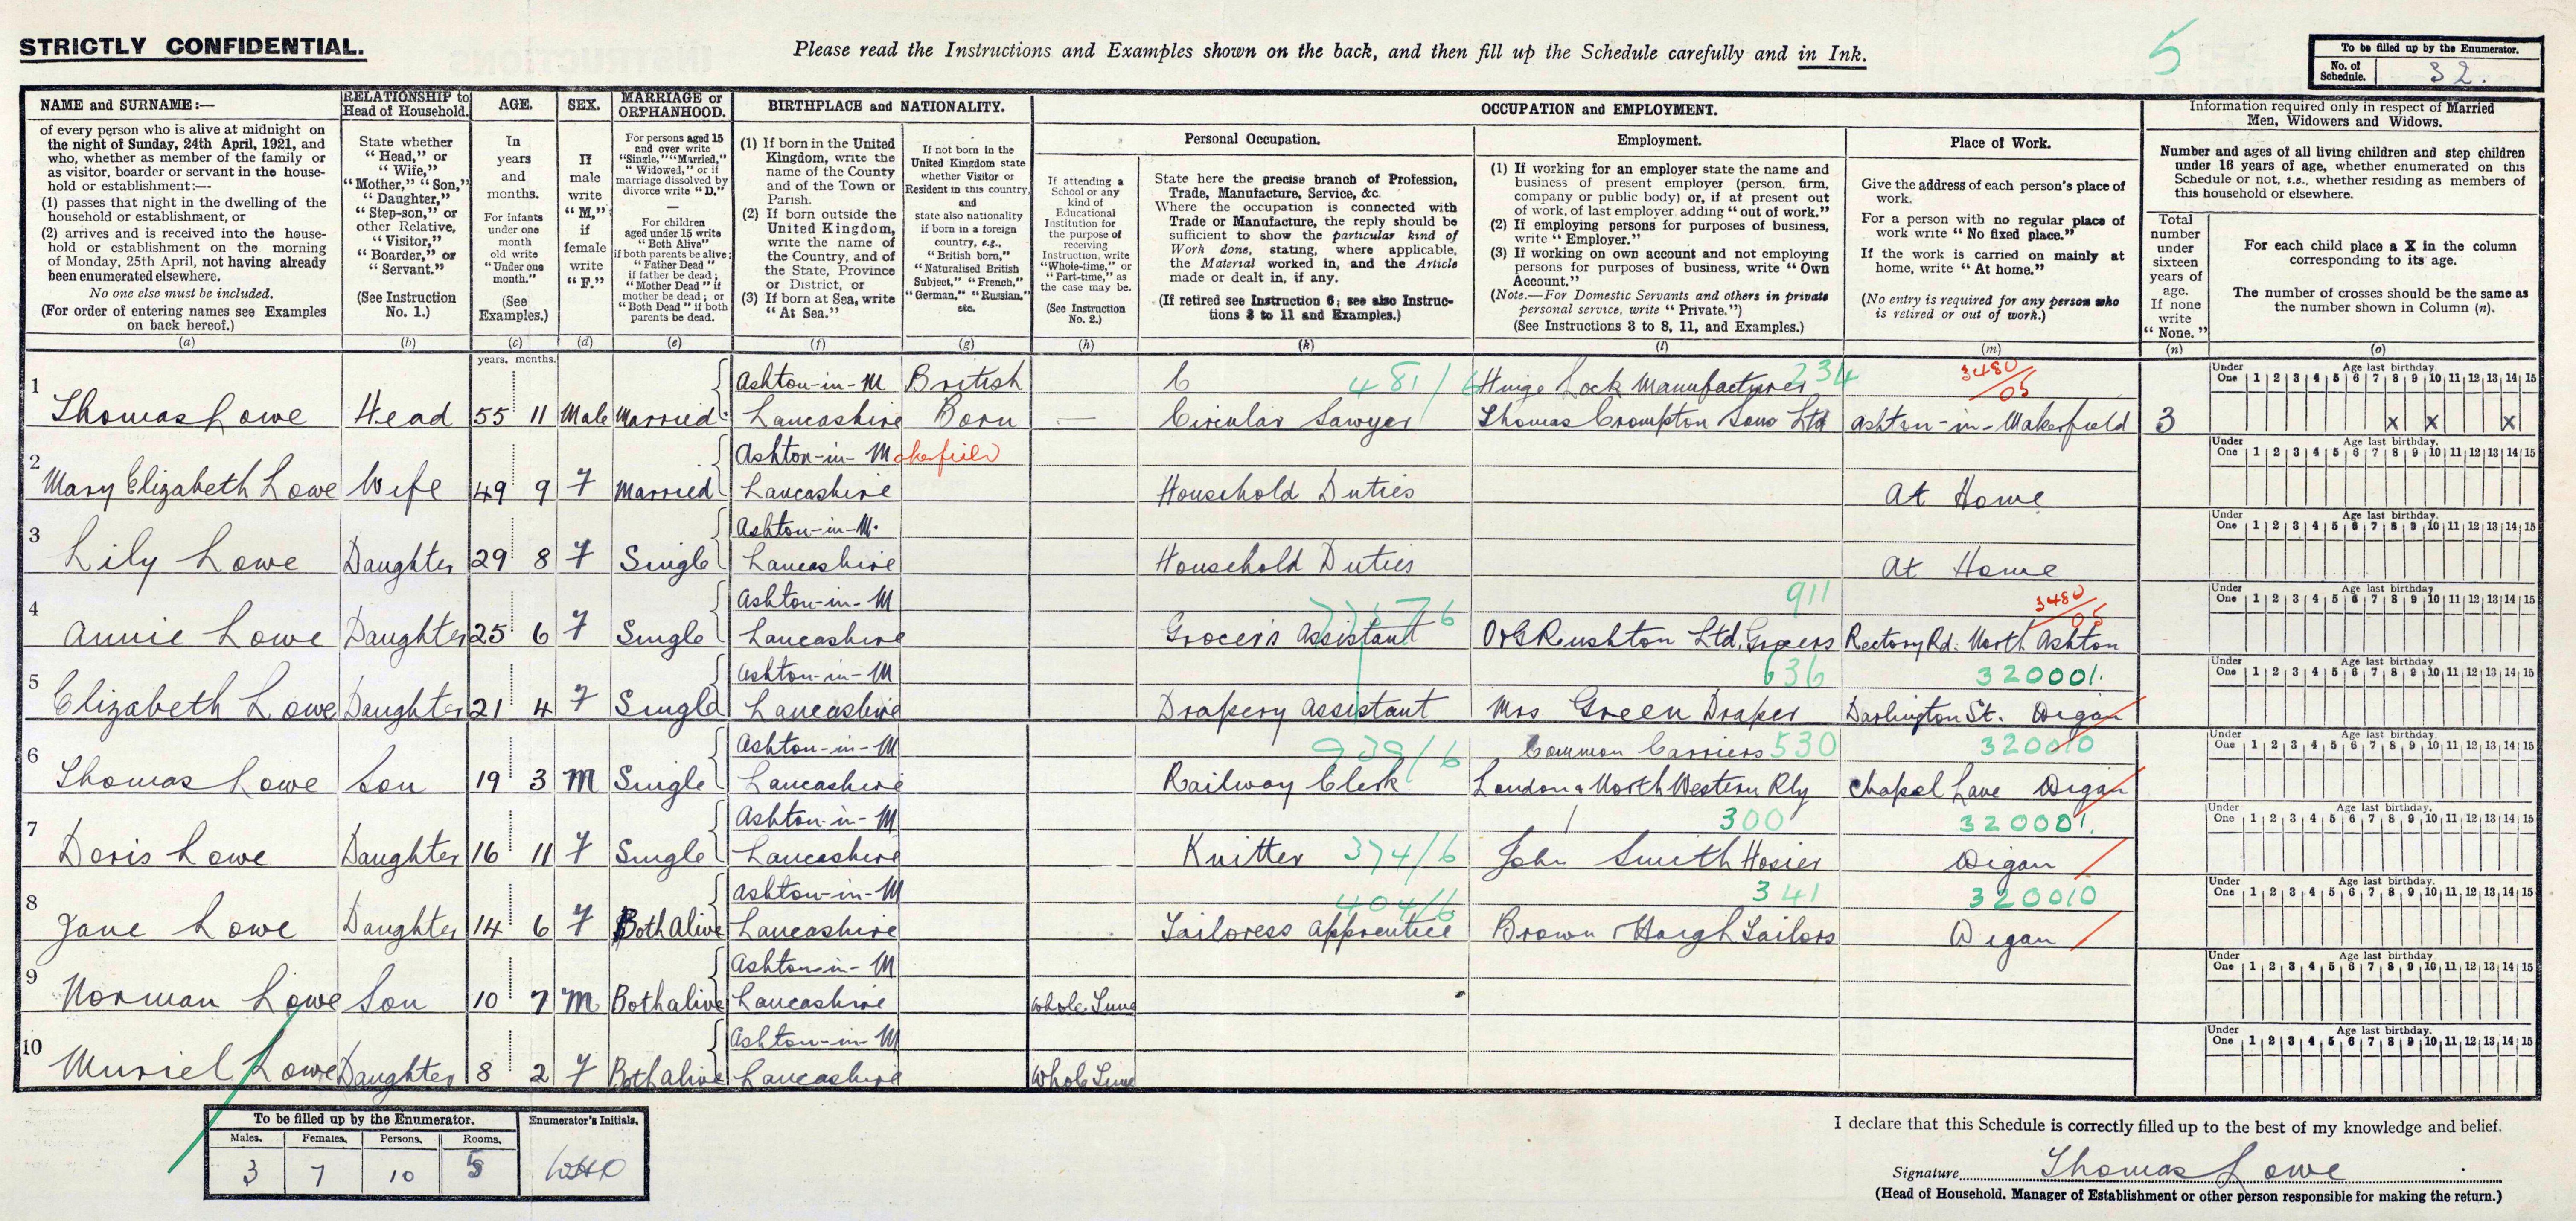 STRICTLY CONFIDENTIAL.
Please read the Instructions and Examples shown on the back, and then fill up the Schedule carefully and in Ink.
5
To be filled up by the Enumerator.
No. of Schedule. 32.
NAME and SURNAME:—
of every person who is alive at midnight on
the night of Sunday, 24th April, 1921, and
who, whether as member of the family or
as visitor, boarder or servant in the house-
hold or establishment:—
(1) passes that night in the dwelling of the
household or establishment, or
(2) arrives and is received into the house-
hold or establishment on the morning
of Monday, 25th April, not having already
been enumerated elsewhere.
No one else must be included.
(For order of entering names see Examples
on back hereof.)
(a)
RELATIONSHIP to
Head of Household.
State whether
"Head," or
"Wife,"
"Mother," "Son,"
"Daughter,"
"Step-son," or
other Relative,
"Visitor,"
"Boarder," or
"Servant."
(See Instruction
No. 1.)
(b)
AGE.
In
years
and
months.
For infants
under one
month
old write
"Under one
month."
(See
Examples.)
(c)
SEX.
If
male
write
"M,"
if
female
write
"F."
(d)
MARRIAGE or
ORPHANHOOD.
For persons aged 15
and over write
"Single," "Married,"
"Widowed," or if
marriage dissolved by
divorce write "D."
For children
aged under 15 write
"Both Alive"
if both parents be alive;
"Father Dead"
if father be dead;
"Mother Dead" if
mother be dead; or
"Both Dead" if both
parents be dead.
(e)
BIRTHPLACE and NATIONALITY.
(1) If born in the United
Kingdom, write the
name of the County
and of the Town or
Parish.
(2) If born outside the
United Kingdom,
write the name of
the Country, and of
the State, Province
or District, or
(3) If born at Sea, write
"At Sea."
(f)
If not born in the
United Kingdom state
whether Visitor or
Resident in this country,
and
state also nationality
if born in a foreign
country, e.g.,
"British born,"
"Naturalised British
Subject," "French,"
"German," "Russian,"
etc.
(g)
OCCUPATION and EMPLOYMENT.
If attending a
School or any
kind of
Educational
Institution for
the purpose of
receiving
Instruction, write
"Whole-time," or
"Part-time," as
the case may be.
(See Instruction
No. 2.)
(h)
Personal Occupation.
State here the precise branch of Profession,
Trade, Manufacture, Service, &c.
Where the occupation is connected with
Trade or Manufacture, the reply should be
sufficient to show the particular kind of
Work done, stating, where applicable,
the Material worked in, and the Article
made or dealt in, if any.
(If retired see Instruction 6; see also Instruc-
tions 3 to 11 and Examples.)
(k)
Employment.
(1) If working for an employer state the name and
business of present employer (person, firm,
company or public body) or, if at present out
of work, of last employer, adding "out of work."
(2) If employing persons for purposes of business,
write "Employer."
(3) If working on own account and not employing
persons for purposes of business, write "Own
Account."
(Note.—For Domestic Servants and others in private
personal service, write "Private.")
(See Instructions 3 to 8, 11, and Examples.)
(l)
Place of Work.
Give the address of each person's place of
work.
For a person with no regular place of
work write "No fixed place."
If the work is carried on mainly at
home, write "At home."
(No entry is required for any person who
is retired or out of work.)
(m)
Information required only in respect of Married
Men, Widowers and Widows.
Number and ages of all living children and step children
under 16 years of age, whether enumerated on this
Schedule or not, i.e., whether residing as members of
this household or elsewhere.
Total
number
under
sixteen
years of
age.
If none
write
"None."
(n)
For each child place a X in the column
corresponding to its age.
The number of crosses should be the same as
the number shown in Column (n).
(o)
years. months.
1 Ashton-in-M British C 481/6 Hinge Lock Manufacturer 234 3480/05
Thomas Lowe Head 55 11 Male Married Lancashire Born — Circular Sawyer Thomas Crompton Sons Ltd Ashton-in-Makerfield 3
Under One Age last birthday. 1 2 3 4 5 6 7 8 9 10 11 12 13 14 15
X X X
2 Ashton-in-Makerfield
Mary Elizabeth Lowe Wife 49 9 F Married Lancashire Household Duties At Home
Under One Age last birthday. 1 2 3 4 5 6 7 8 9 10 11 12 13 14 15
3 Ashton-in-M.
Lily Lowe Daughter 29 8 F Single Lancashire Household Duties At Home
Under One Age last birthday. 1 2 3 4 5 6 7 8 9 10 11 12 13 14 15
4 Ashton-in-M 911 3480/05
Annie Lowe Daughter 25 6 F Single Lancashire Grocer's Assistant O & G Rushton Ltd, Grocers Rectory Rd. North Ashton
Under One Age last birthday. 1 2 3 4 5 6 7 8 9 10 11 12 13 14 15
5 Ashton-in-M 636 320001.
Elizabeth Lowe Daughter 21 4 F Single Lancashire Drapery Assistant Mrs Green Draper Darlington St. Wigan
Under One Age last birthday. 1 2 3 4 5 6 7 8 9 10 11 12 13 14 15
6 Ashton-in-M 939/6 Common Carriers 530 320010
Thomas Lowe Son 19 3 M Single Lancashire Railway Clerk London & North Western Rly Chapel Lane Wigan
Under One Age last birthday. 1 2 3 4 5 6 7 8 9 10 11 12 13 14 15
7 Ashton-in-M 300 320001.
Doris Lowe Daughter 16 11 F Single Lancashire Knitter 374/6 John Smith Hosier Wigan
Under One Age last birthday. 1 2 3 4 5 6 7 8 9 10 11 12 13 14 15
8 Ashton-in-M 404/6 341 320010
Jane Lowe Daughter 14 6 F Both Alive Lancashire Tailoress Apprentice Brown & Haigh Tailors Wigan
Under One Age last birthday. 1 2 3 4 5 6 7 8 9 10 11 12 13 14 15
9 Ashton-in-M
Norman Lowe Son 10 7 M Both alive Lancashire Whole Time
Under One Age last birthday. 1 2 3 4 5 6 7 8 9 10 11 12 13 14 15
10 Ashton-in-M
Muriel Lowe Daughter 8 2 F Both alive Lancashire Whole Time
Under One Age last birthday. 1 2 3 4 5 6 7 8 9 10 11 12 13 14 15
To be filled up by the Enumerator.
Males. Females. Persons. Rooms.
3 7 10 5
Enumerator's Initials.
I declare that this Schedule is correctly filled up to the best of my knowledge and belief.
Signature Thomas Lowe
(Head of Household, Manager of Establishment or other person responsible for making the return.)